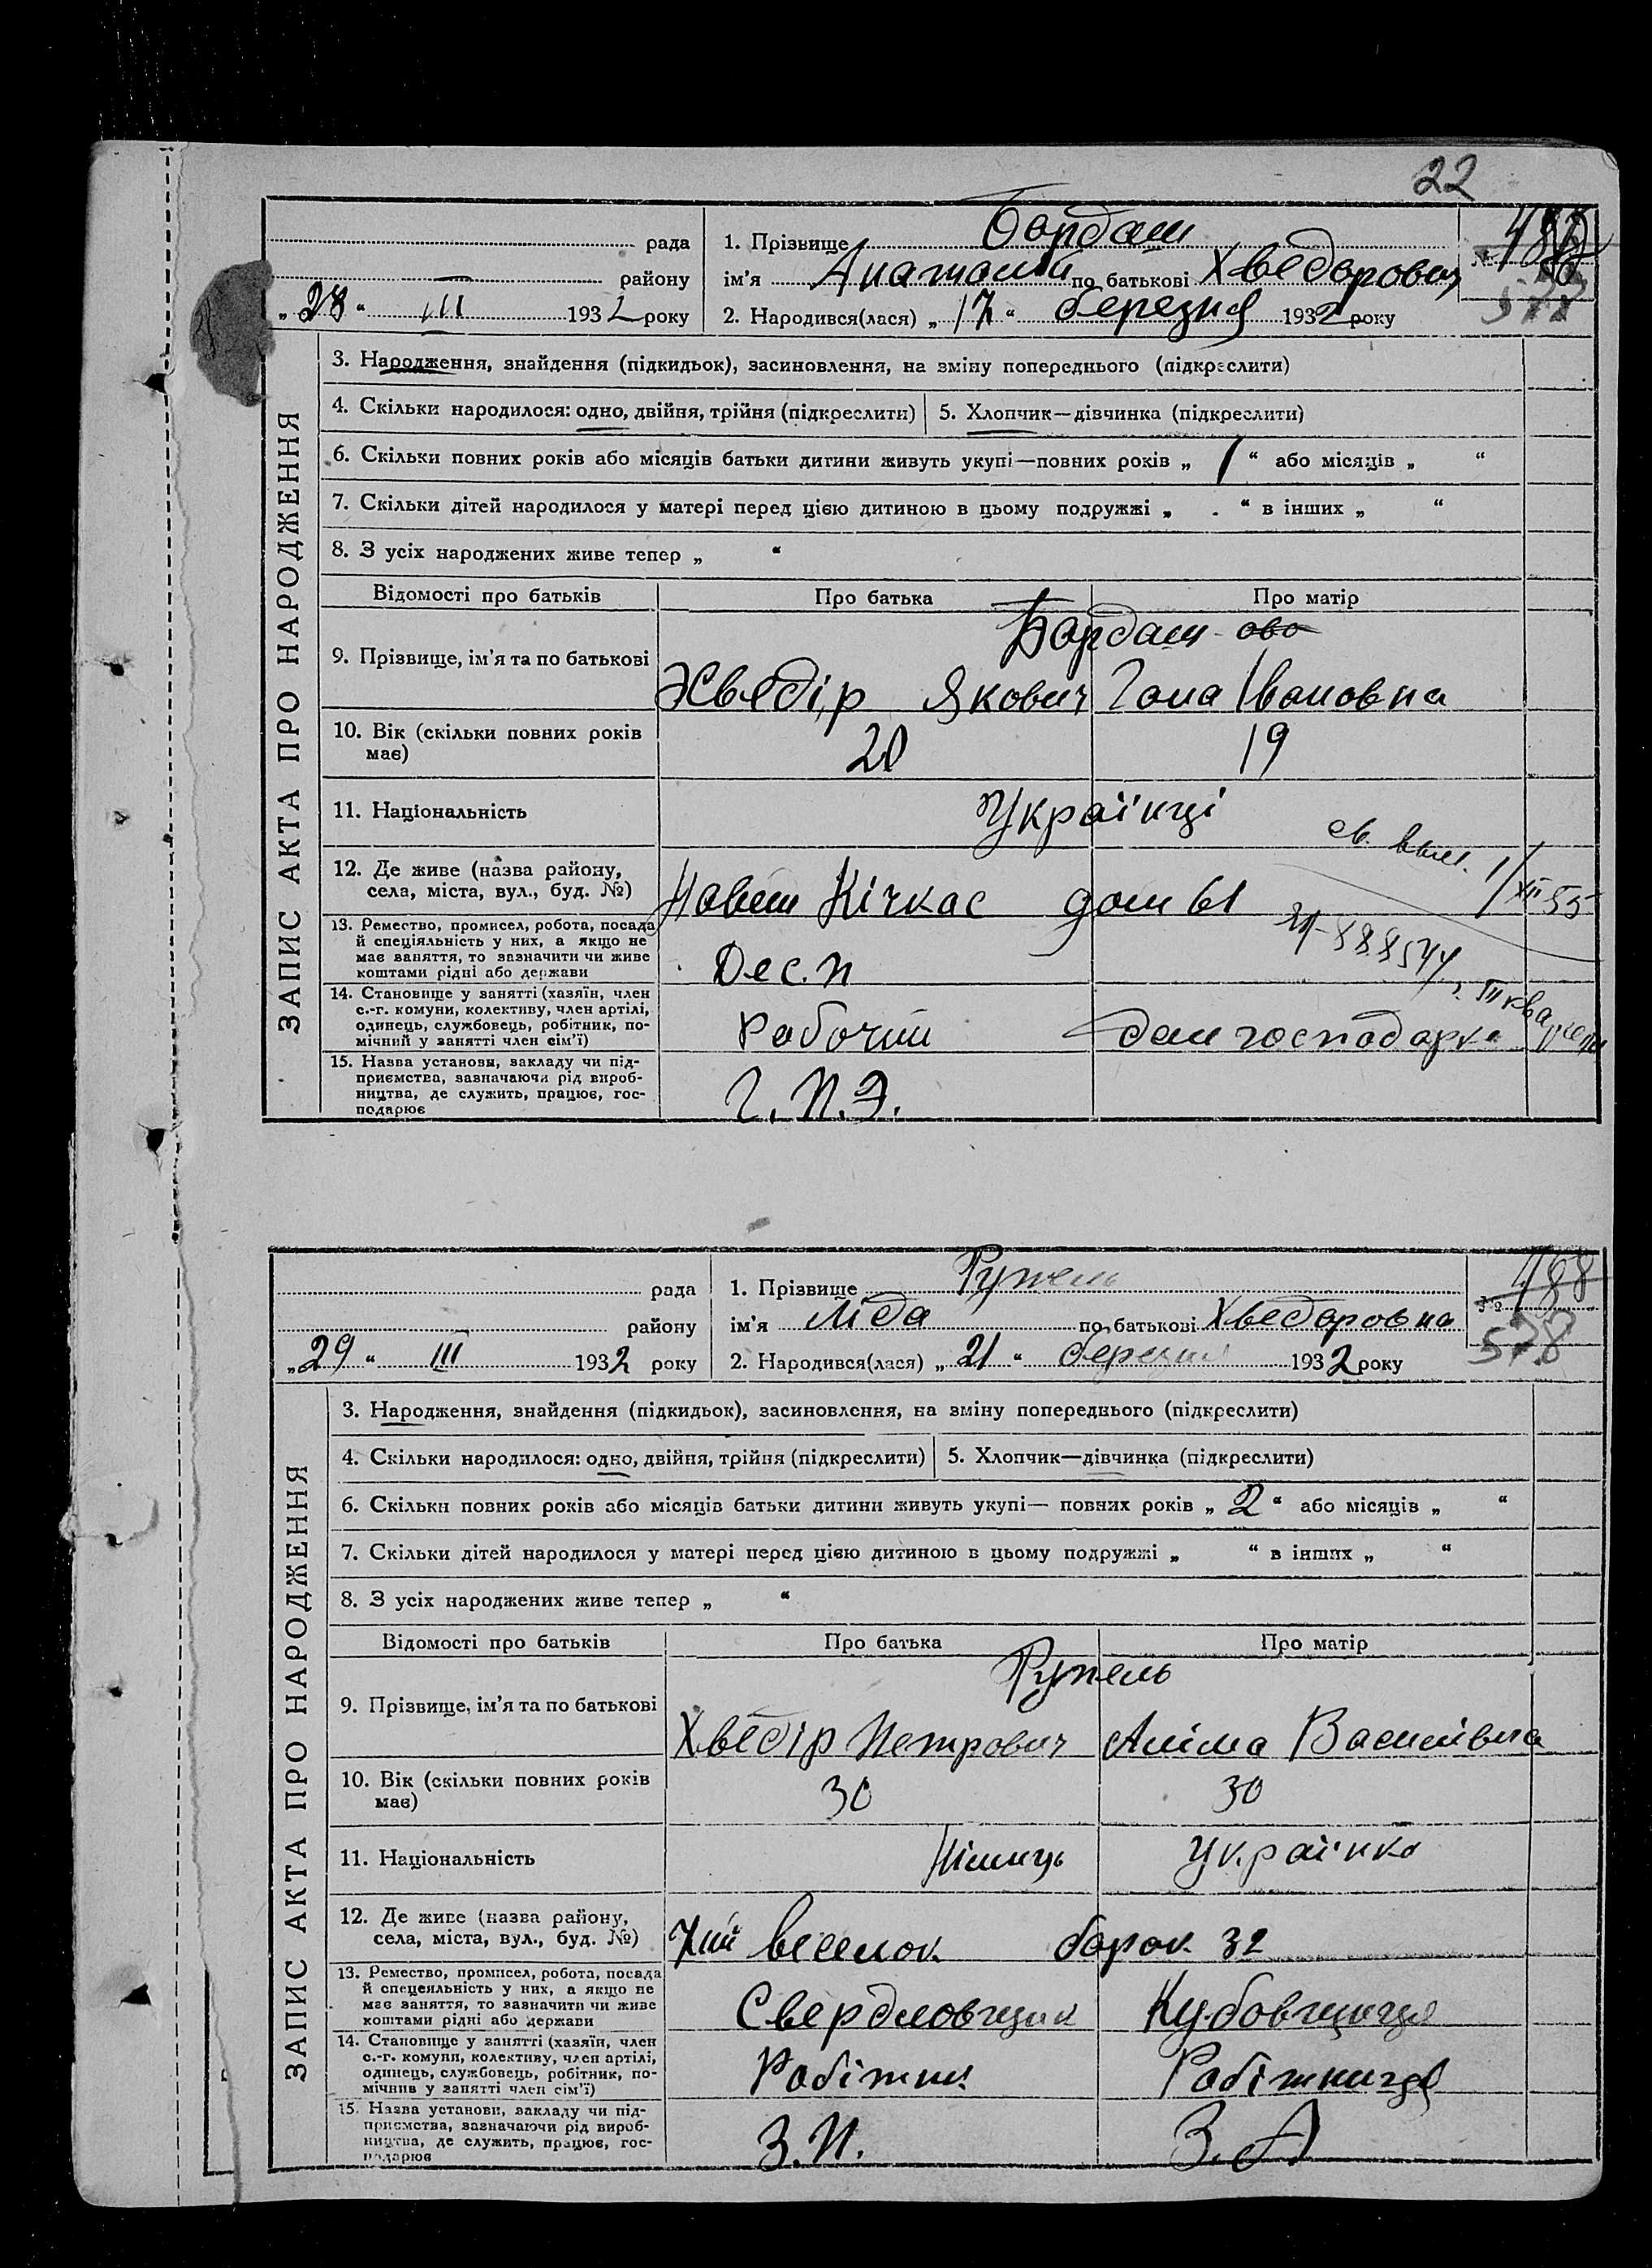 22
рада
району
„28“ III 1932 року
1. Прізвище Бардаш
ім’я Анатолій по батькові Хведорович
2. Народився(лася) „17“ березня 1932 року
№
577
ЗАПИС АКТА ПРО НАРОДЖЕННЯ
3. Народження, знайдення (підкидьок), засиновлення, на зміну попереднього (підкреслити)
4. Скільки народилося: одно, двійня, трійня (підкреслити) 5. Хлопчик—дівчинка (підкреслити)
6. Скільки повних років або місяців батьки дитини живуть укупі—повних років „ 1 “ або місяців „ “
7. Скільки дітей народилося у матері перед цією дитиною в цьому подружжі „ “ в інших „ “
8. З усіх народжених живе тепер „ “
Відомості про батьків Про батька Про матір
9. Прізвище, ім’я та по батькові
Бардаш ова
Хведір Якович Гана Івановна
10. Вік (скільки повних років має)
20 19
11. Національність
Українці
12. Де живе (назва району, села, міста, вул., буд. №)
Новий Кічкас дом 61
св. выл. 1/XII 55
888544
13. Ремество, промисел, робота, посада
й спеціяльність у них, а якщо не
має заняття, то зазначити чи живе
коштами рідні або держави
Дес.
14. Становище у занятті (хазяїн, член
с.-г. комуни, колективу, член артілі,
одинець, службовець, робітник, по-
мічний у занятті член сім’ї)
Рабочий Дом господарка
15. Назва установи, закладу чи під-
приємства, зазначаючи рід вироб-
ництва, де служить, працює, гос-
подарює
Г. П. Э.
рада
району
„29“ III 1932 року
1. Прізвище Рупель
ім’я Ліда по батькові Хведоровна
2. Народився(лася) „21“ березня 1932 року
№ 488
578
ЗАПИС АКТА ПРО НАРОДЖЕННЯ
3. Народження, знайдення (підкидьок), засиновлення, на зміну попереднього (підкреслити)
4. Скільки народилося: одно, двійня, трійня (підкреслити) 5. Хлопчик—дівчинка (підкреслити)
6. Скільки повних років або місяців батьки дитини живуть укупі— повних років „ 2 “ або місяців „ “
7. Скільки дітей народилося у матері перед цією дитиною в цьому подружжі „ “ в інших „ “
8. З усіх народжених живе тепер „ “
Відомості про батьків Про батька Про матір
9. Прізвище, ім’я та по батькові
Рупель
Хведір Петрович Василівна
10. Вік (скільки повних років має)
30 30
11. Національність
Німець Українка
12. Де живе (назва району, села, міста, вул., буд. №)
барак 32
13. Ремество, промисел, робота, посада
й спецеяльність у них, а якщо не
має заняття, то зазначити чи живе
коштами рідні або держави
Свердловщик Кубовщиця
14. Становище у занятті (хазяїн, член
с.-г. комуни, колективу, член артілі,
одинець, службовець, робітник, по-
мічник у занятті член сім’ї)
Робітник Робітниця
15. Назва установи, закладу чи під-
приємства, зазначаючи рід вироб-
ництва, де служить, працює, гос-
подарює